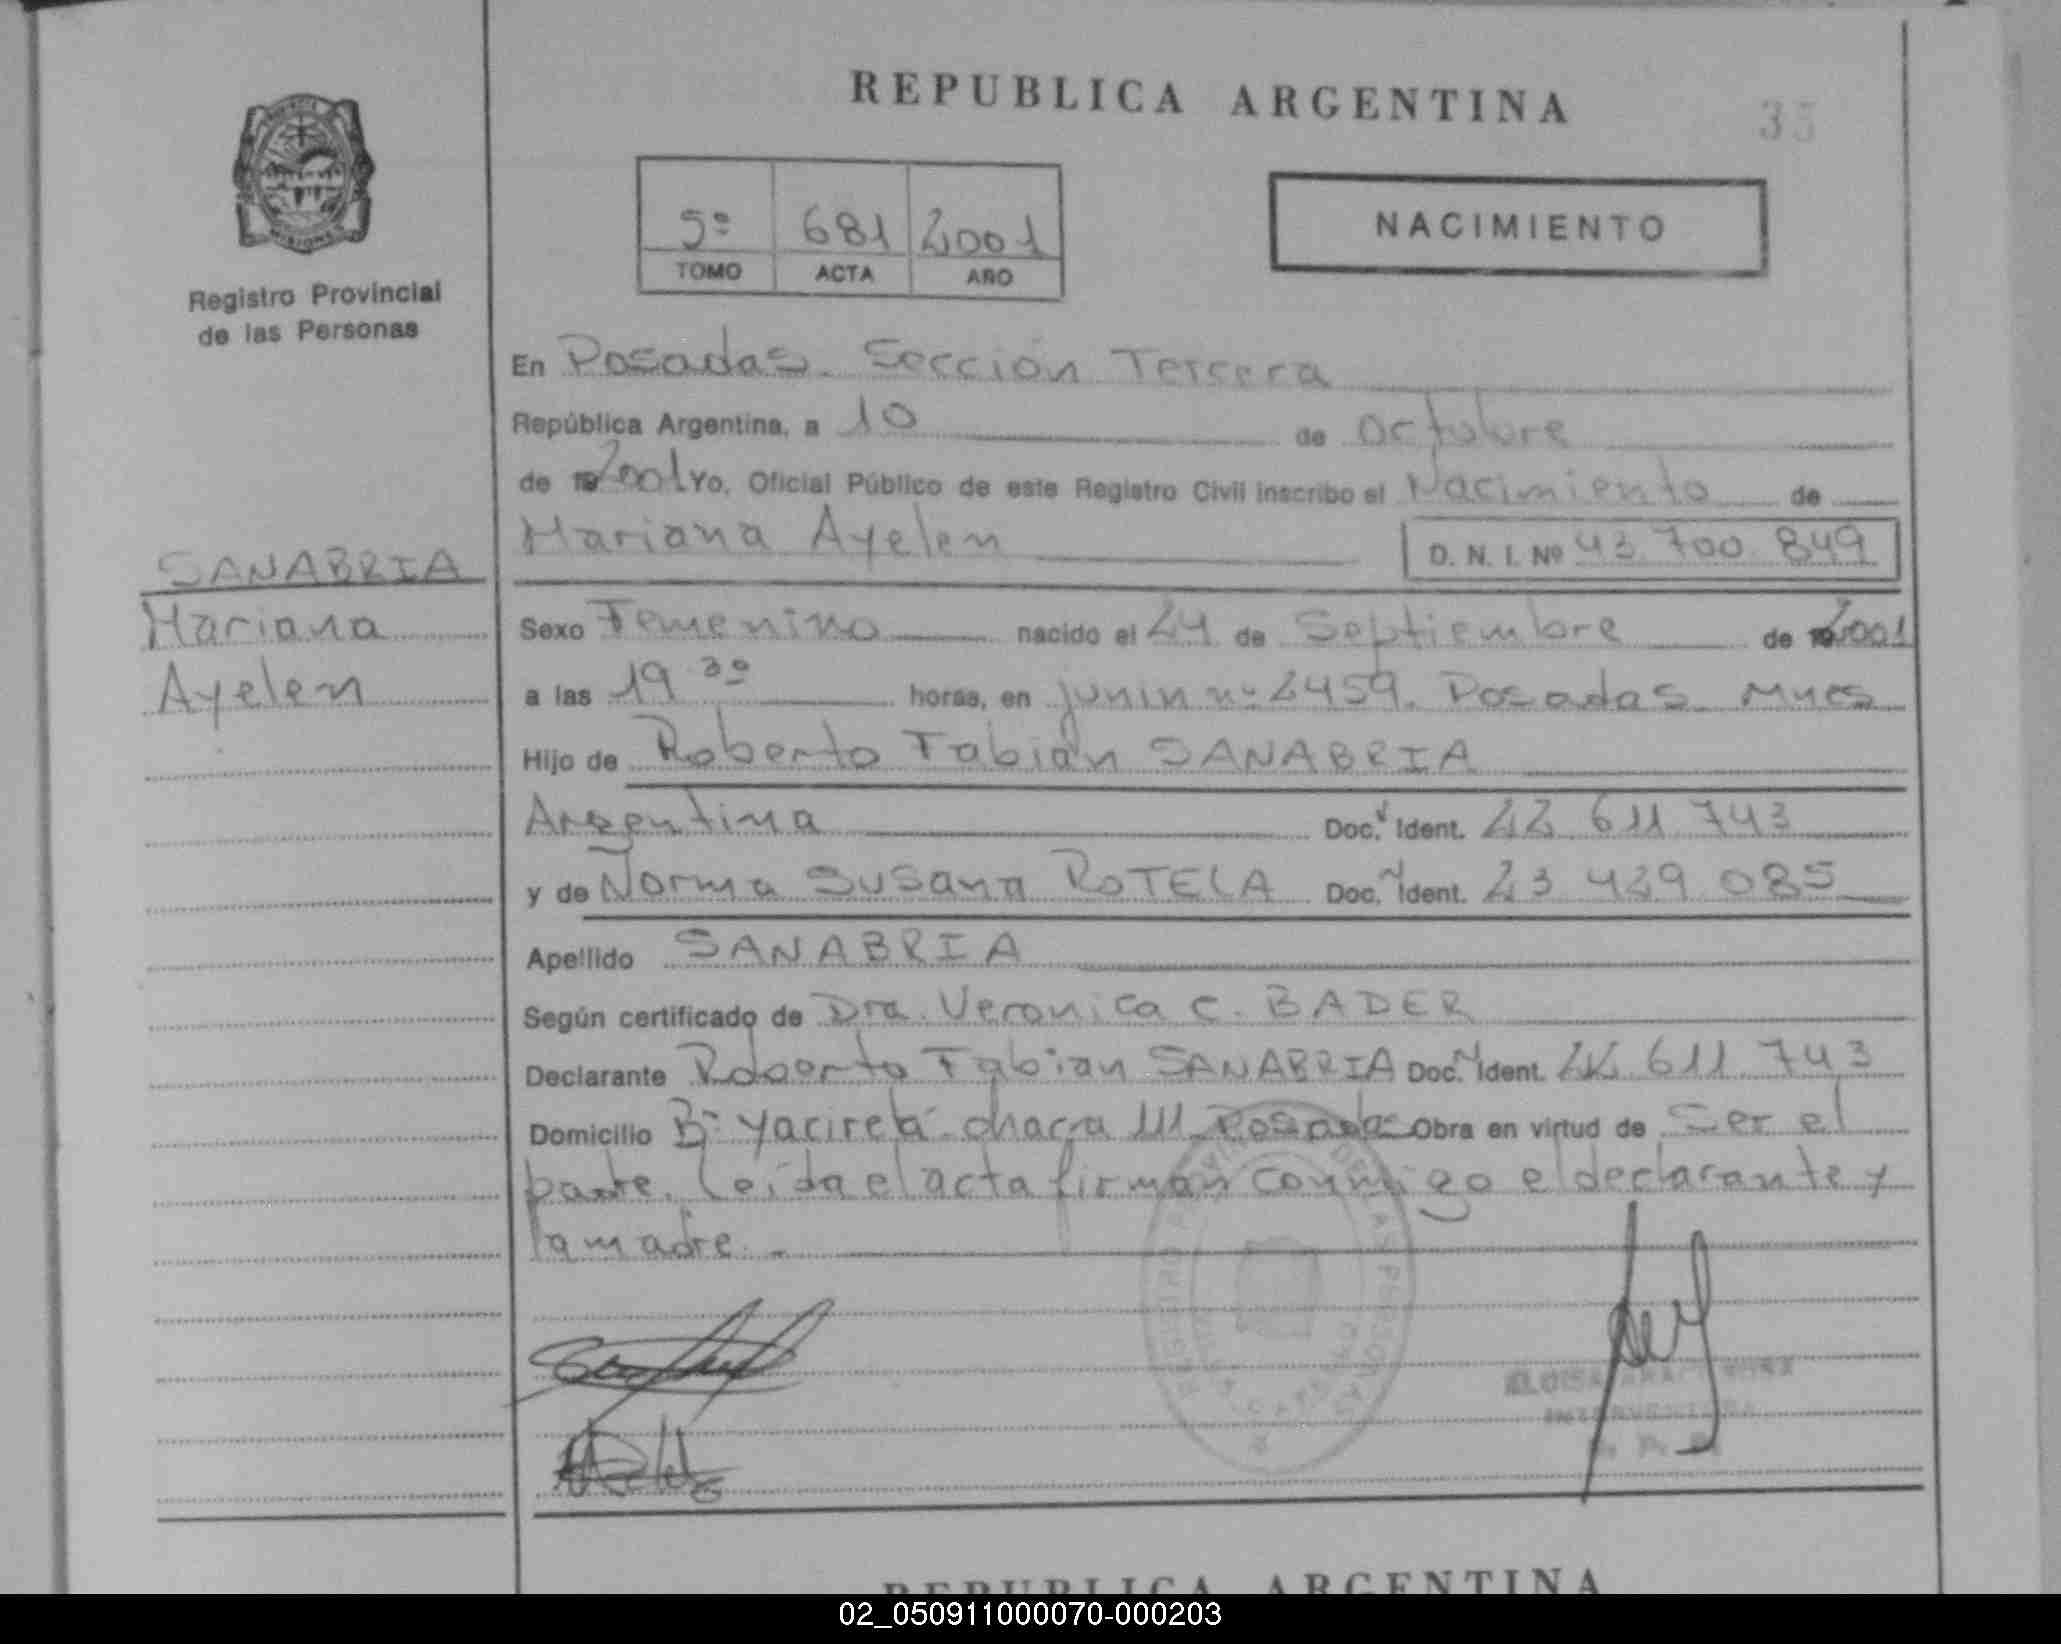 REPUBLICA ARGENTINA
35
5º 681 2001
TOMO ACTA AÑO
NACIMIENTO
Registro Provincial
de las Personas
En Posadas. Sección Tercera
República Argentina, a 10 de Octubre
de 2001 Yo, Oficial Público de este Registro Civil inscribo el Nacimiento de
Mariana Ayelen D. N. I. Nº 43.700.849
SANABRIA
Mariana
Ayelen
Sexo Femenino nacido el 24 de Septiembre de 2001
a las 19 30 horas, en junin nº 2459. Posadas. Mnes
Hijo de Roberto Fabián SANABRIA
Argentina Doc. Ident. 22 611 743
y de Norma Susana ROTELA Doc. Ident. 23 429 085
Apellido SANABRIA
Según certificado de Dra. Veronica C. BADER
Declarante Roberto Fabian SANABRIA Doc. Ident. 22 611 743
Domicilio Bº Yacireta chacra 111 Posadas Obra en virtud de Ser el
padre. Leída el acta firman conmigo el declarante y
la madre. -
REGISTRO PROVINCIAL DE LAS PERSONAS
INTERVENTORA
REPUBLICA ARGENTINA
02_050911000070-000203